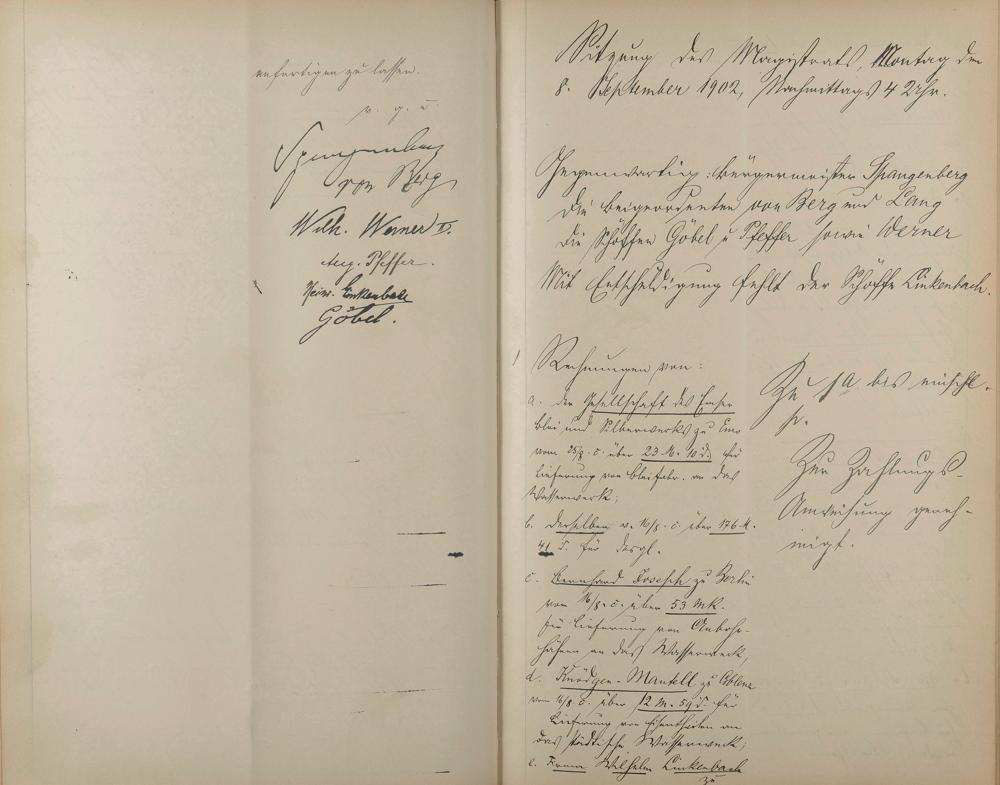 anfertigen zu lassen.
v. g. u
Spangenberg
von Berg
Wilh. Werner II.
Aug. Pfeffer.
Heinr. Linkenbach
Göbel.
Sitzung des Magistrats, Montag den
8. September 1902, Nachmittags 4 Uhr.
Gegenwärtig: Bürgermeister Spangenberg
die Beigeordneten von Berg und Lang
die Schöffen Göbel u Pfeffer sowie Werner
Mit Entschuldigung fehlt der Schöffe Linkenbach.
1) Rechnungen von:
a. der Gesellschaft des Emser
Blei und Silberwerks zu Ems
vom 25/8. c. über 23 M. 10 d. für
Lieferung von Bleifabr. an das
Wasserwerk;
b. derselben v. 16/8. c. über 176 M.
41 d. für desgl.
c. Bernhard Joseph zu Berlin
vom 16/8. c. über 53 Mk.
für Lieferung von Anbohr-
hähnen an das Wasserwerk,
d. Knödgen-Mantell zu Coblenz
vom 16/8. c. über 12 M. 59 d. für
Lieferung von Eisentheilen an
das städtische Wasserwerk;
e. Firma Wilhelm Linkenbach
zu
Zu 1a bis einschl.
Zur Zahlungs-
Anweisung geneh-
migt.